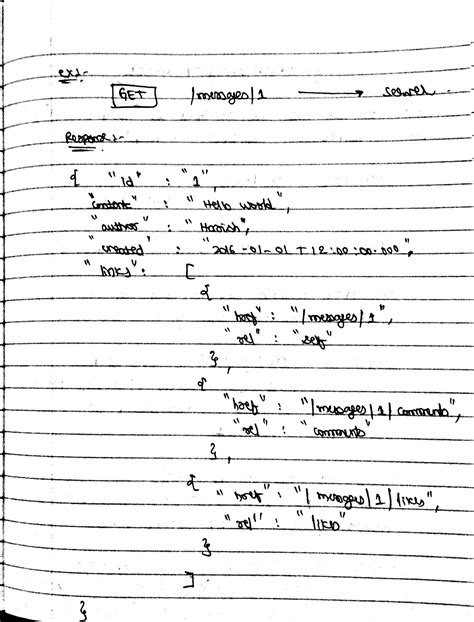 ex1:-
GET /messages/1 → server
Response:-
{ "id" : "1",
"content" : "Hello world",
"author" : "Harish",
"created" : "2016-01-01T12:00:00.000",
"links": [
{
"href" : "/messages/1",
"rel" : "self"
},
{
"href" : "/messages/1/comments",
"rel" : "comments"
},
{
"href" : "/messages/1/likes",
"rel" : "likes"
}
]
}